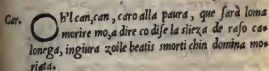 Car. Oh'l can, can, caro alla paura, que farà loma
morire mo, a dire co dise la slieza de raso ca
lonega, ingiura zoile beatis smorti chin domina mo
riata.